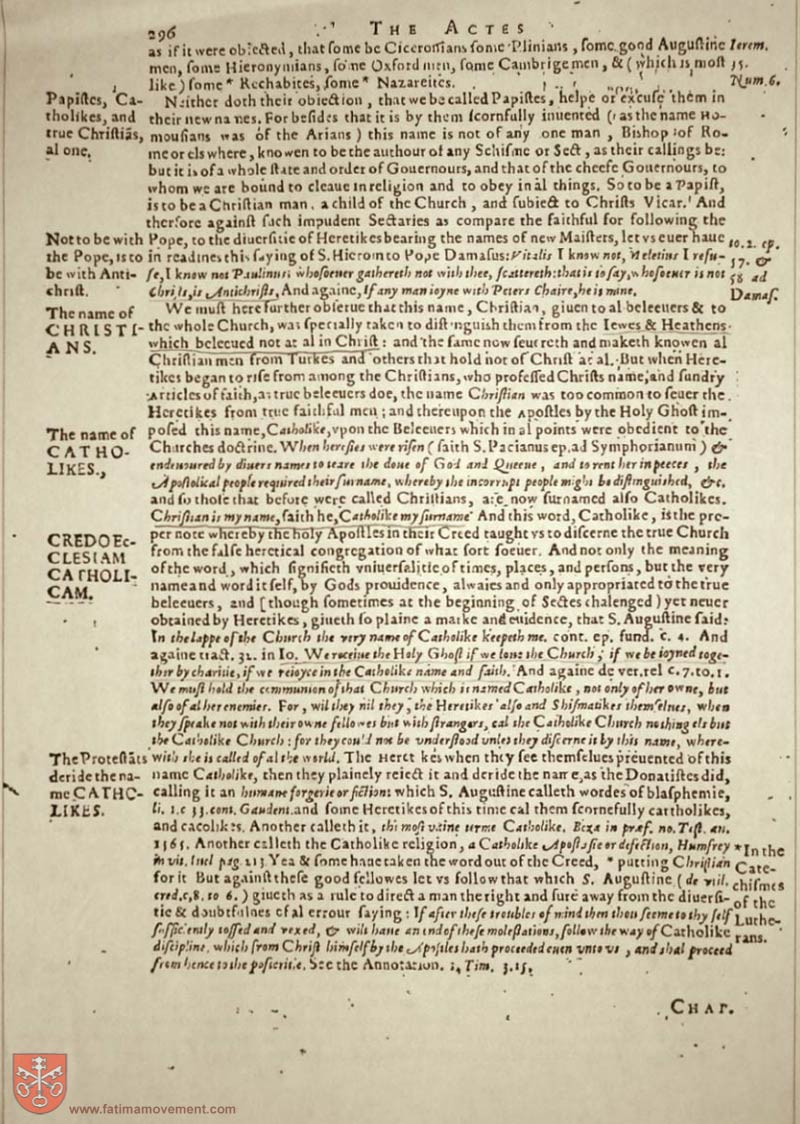 296 THE ACTES
as if it were obiected, that some be Ciceronians some Plinians, some good Augustine
men, some Hieronymians, some Oxford men, some Cambrige men, & (which is most
like) some * Rechabites, some * Nazareites.
Ierem.
35.
Num. 6.
Papistes, Ca-
tholikes, and
true Christiãs,
al one.
Neither doth their obiection, that we be called Papistes, helpe or excuse them in
their new names. For besides that it is by them scornfully inuented (as the name HO-
mousians was of the Arians) this name is not of any one man, Bishop of Ro-
me or els where, knowen to be the authour of any Schisme or Sect, as their callings be:
but it is of a whole state and order of Gouernours, and that of the cheefe Gouernours, to
whom we are bound to cleaue in religion and to obey in al things. So to be a Papist,
is to be a Christian man, a child of the Church, and subiect to Christs Vicar. And
therfore against such impudent Sectaries as compare the faithful for following the
Not to be with
the Pope, is to
be with Anti-
christ.
Pope, to the diuersitie of Heretikes bearing the names of new Maisters, let vs euer haue
in readines this saying of S. Hierom to Pope Damasus: Vitalis I know not, Meletius I refu-
se, I know not Paulinus: whosoeuer gathereth not with thee, scattereth: that is to say, whosoeuer is not
Christs, is Antichrists, And againe, If any man ioyne with Peters Chaire, he is mine.
to. 2. ep.
57. &
58 ad
Damas.
The name of
CHRISTI-
ANS.
We must here further obserue that this name, Christian, giuen to al beleeuers & to
the whole Church, was specially taken to distinguish them from the Iewes & Heathens
which beleeued not at al in Christ: and the same now seuereth and maketh knowen al
Christian men from Turkes and others that hold not of Christ at al. But when Here-
tikes began to rise from among the Christians, who professed Christs name, and sundry
Articles of faith, as true beleeuers doe, the name Christian was too common to seuer the
Heretikes from true faithful men; and thereupon the Apostles by the Holy Ghost im-
The name of
CATHO-
LIKES.
posed this name, Catholike, vpon the Beleeuers which in al points were obedient to the
Churches doctrine. When heresies were risen (saith S. Pacianus ep. ad Symphorianum) &
endeuoured by diuers names to teare the doue of God and Queene, and to rent her in peeces, the
Apostolical people required their surname, whereby the incorrupt people might be distinguished, &c.
and so those that before were called Christians, are now surnamed also Catholikes.
Christian is my name, saith he, Catholike my surname And this word, Catholike, is the pro-
CREDO Ec-
CLESIAM
CATHOLI-
CAM.
per note whereby the holy Apostles in their Creed taught vs to discerne the true Church
from the false heretical congregation of what sort soeuer. And not only the meaning
of the word, which signifieth vniuersalitie of times, places, and persons, but the very
name and word it self, by Gods prouidence, alwaies and only appropriated to the true
beleeuers, and [though sometimes at the beginning of Sectes chalenged) yet neuer
obtained by Heretikes, giueth so plaine a marke and euidence, that S. Augustine said:
In the lappe of the Church the very name of Catholike keepeth me. cont. ep. fund. c. 4. And
againe tract. 32. in Io. We receiue the Holy Ghost if we loue the Church; if we be ioyned toge-
ther by charitie, if we reioyce in the Catholike name and faith. And againe de ver. rel c. 7. to. 1.
We must hold the communion of that Church which is named Catholike, not only of her owne, but
also of al her enemies. For, wil they nil they, the Heretikes also and Shismatikes themselues, when
they speake not with their owne fellowes but with strangers, cal the Catholike Church nothing els but
the Catholike Church: for they could not be vnderstood vnles they discerne it by this name, where-
The Protestãts
deride the na-
me CATHO-
LIKES.
with she is called of al the world. The Heretikes when they see themselues preuented of this
name Catholike, then they plainely reiect it and deride the name, as the Donatistes did,
calling it an humane forgerie or fiction: which S. Augustine calleth wordes of blasphemie,
li. 1. c 33. cont. Gaudent. and some Heretikes of this time cal them scornefully cartholikes,
and cacolikes. Another calleth it, the most vaine terme Catholike. Beza in præf. no. Test. an.
1565. Another calleth the Catholike religion, a Catholike Apostasie or defection, Humfrey
in vit. Iuel pag. 213 Yea & some haue taken the word out of the Creed, * putting Christian
for it But against these good fellowes let vs follow that which S. Augustine (de vtil.
cred. c. 8. to 6.) giueth as a rule to direct a man the right and sure away from the diuersi-
tie & doubtfulnes of al errour saying: If after these troubles of mind then thou seeme to thy self
sufficiently tossed and vexed, & wilt haue an end of these molestations, follow the way of Catholike
discipline, which from Christ himself by the Apostles hath proceeded euen vnto vs, and shal proceed
from hence to the posteritie. See the Annotation. 1, Tim. 3. 15.
* In the
Cate-
chismes
of the
Luthe-
rans.
CHAP.
www.fatimamovement.com